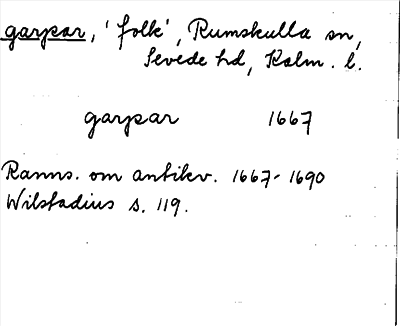 garpar, 'folk', Rumskulla sn,
Sevede hd, Kalm. l.
garpar 1667
Ranns. om antikv. 1667-1690
Wilstadius s. 119.